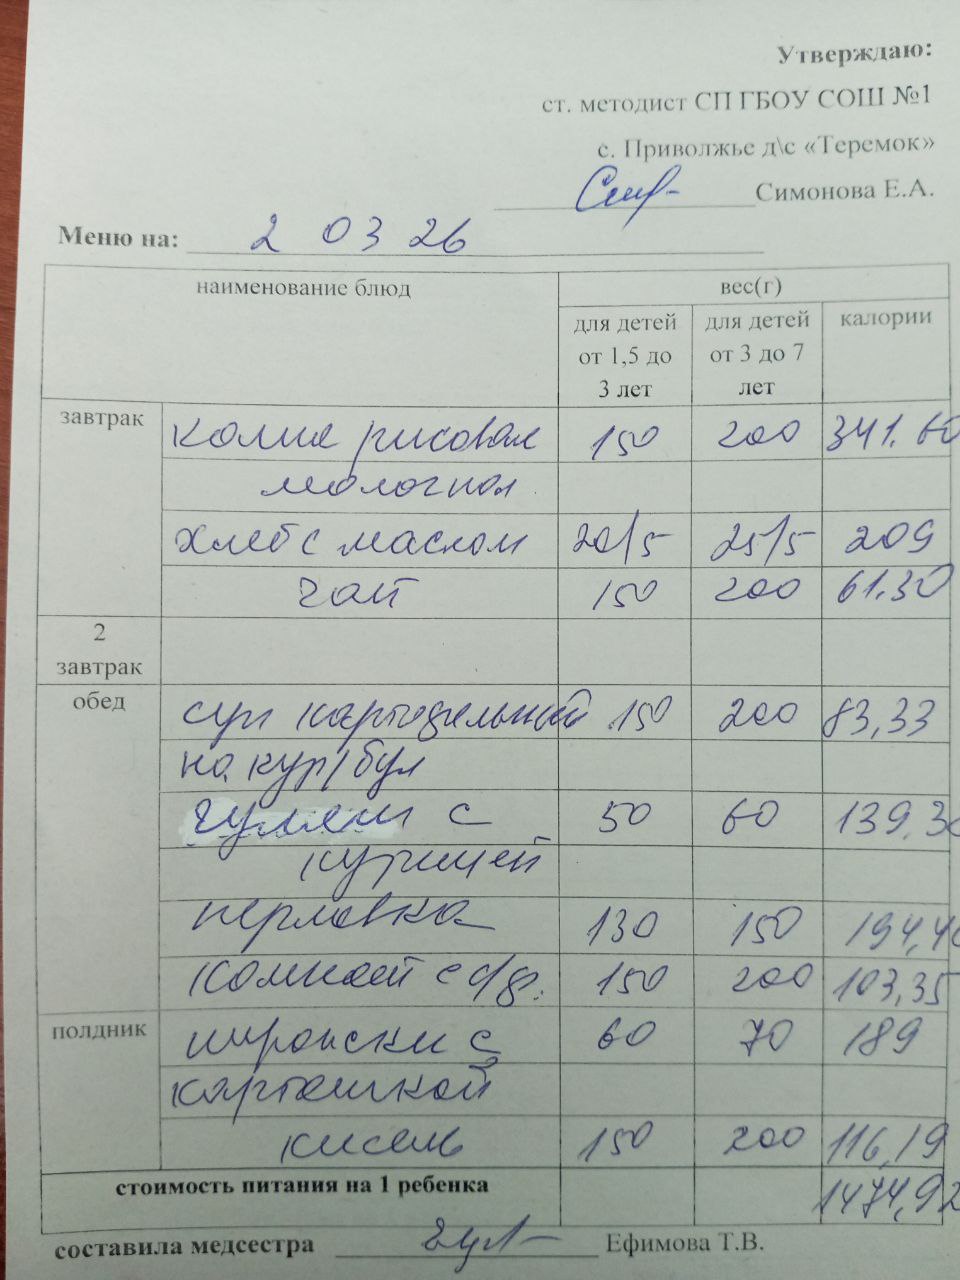 Утверждаю:
ст. методист СП ГБОУ СОШ №1
с. Приволжье д\с «Теремок»
Симонова Е.А.
Меню на: 2 03 26
наименование блюд вес(г)
для детей от 1,5 до 3 лет для детей от 3 до 7 лет калории
завтрак каша рисовая 150 200 341.60
молочная
хлеб с маслом 20/5 25/5 209
чай 150 200 61.30
2 завтрак
обед суп картофельный 150 200 83,33
на кур/бул
гуляш с 50 60 139,30
курицей
перловка 130 150 194,40
компот с с/ф. 150 200 103,35
полдник пирожки с 60 70 189
картошкой
кисель 150 200 116,19
стоимость питания на 1 ребенка 1474,92
составила медсестра Ефимова Т.В.